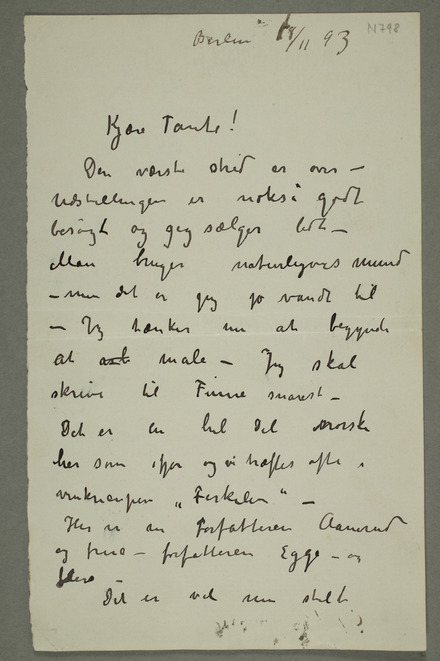 Berlin 18/11 93
N 798
Kjære Tante!
Den værste strid er over –
Udstillingen er nokså godt
besögt og jeg sælger lidt –
Man bruger naturligvis mund
– men det er jeg jo vandt til
– Jeg tænker nu at begynde
at male – Jeg skal
skrive til Finne snarest –
Det er en hel Del norske
her som ifjor og vi træffes ofte i
vinkneipen „Ferkelen“ –
Her er nu Forfatteren Aanrud
og frue – forfatteren Egge – og
flere –
Det er vel nu stelt